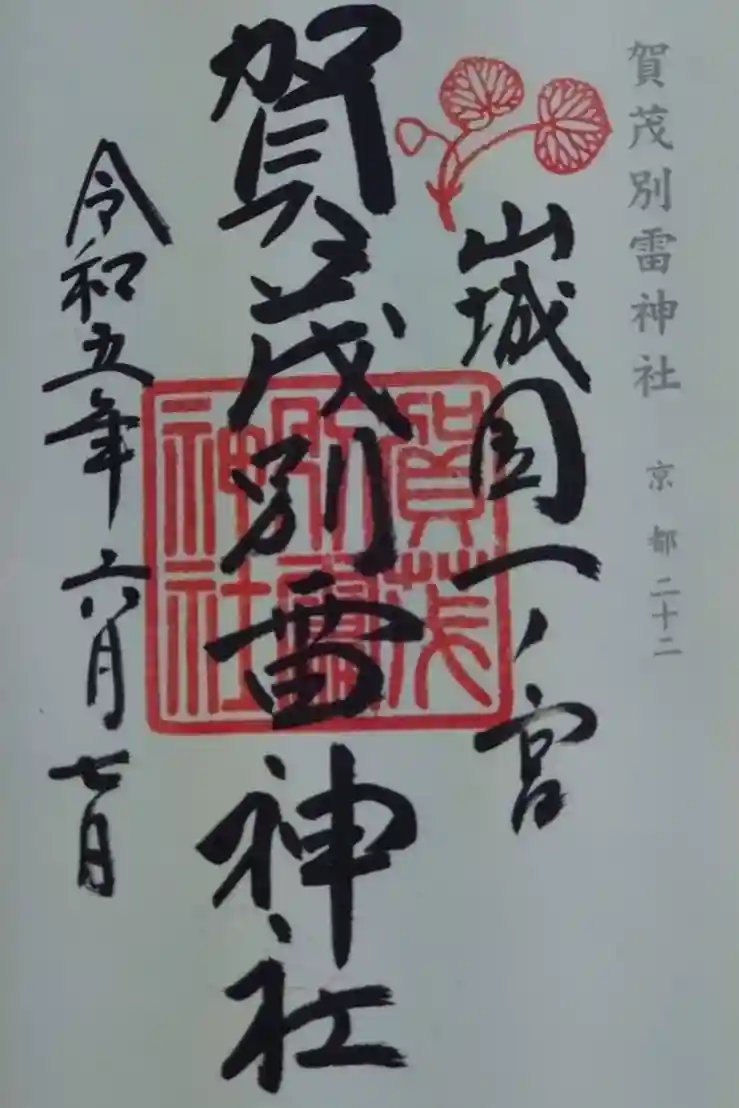 賀茂別雷神社 京都二十二
山城國一ノ宮
賀茂別雷神社
賀茂
別雷
神社
令和五年六月七日